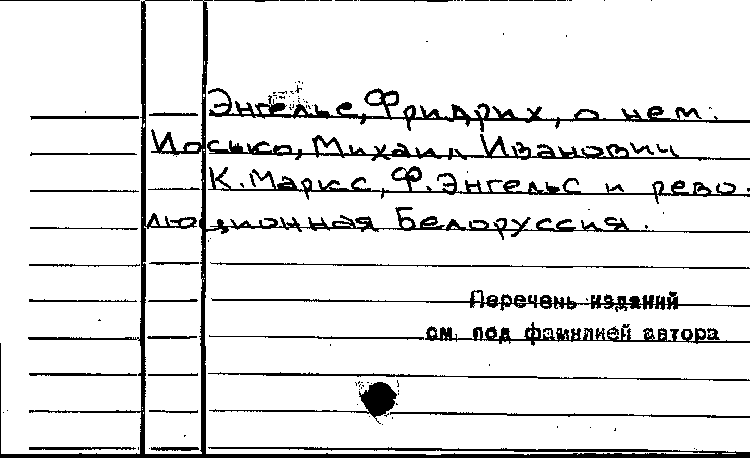 Энгельс, Фридрих, о нем:
Иосько, Михаил Иванович
К. Маркс, Ф. Энгельс и рево-
люционная Белоруссия.
Перечень изданий
см. под фамилией автора